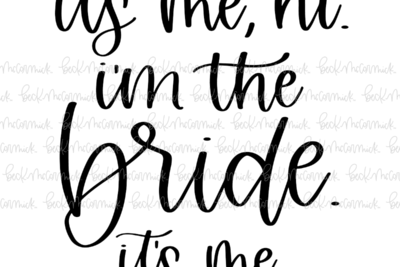 it's me, hi.
i'm the
bride.
it's me